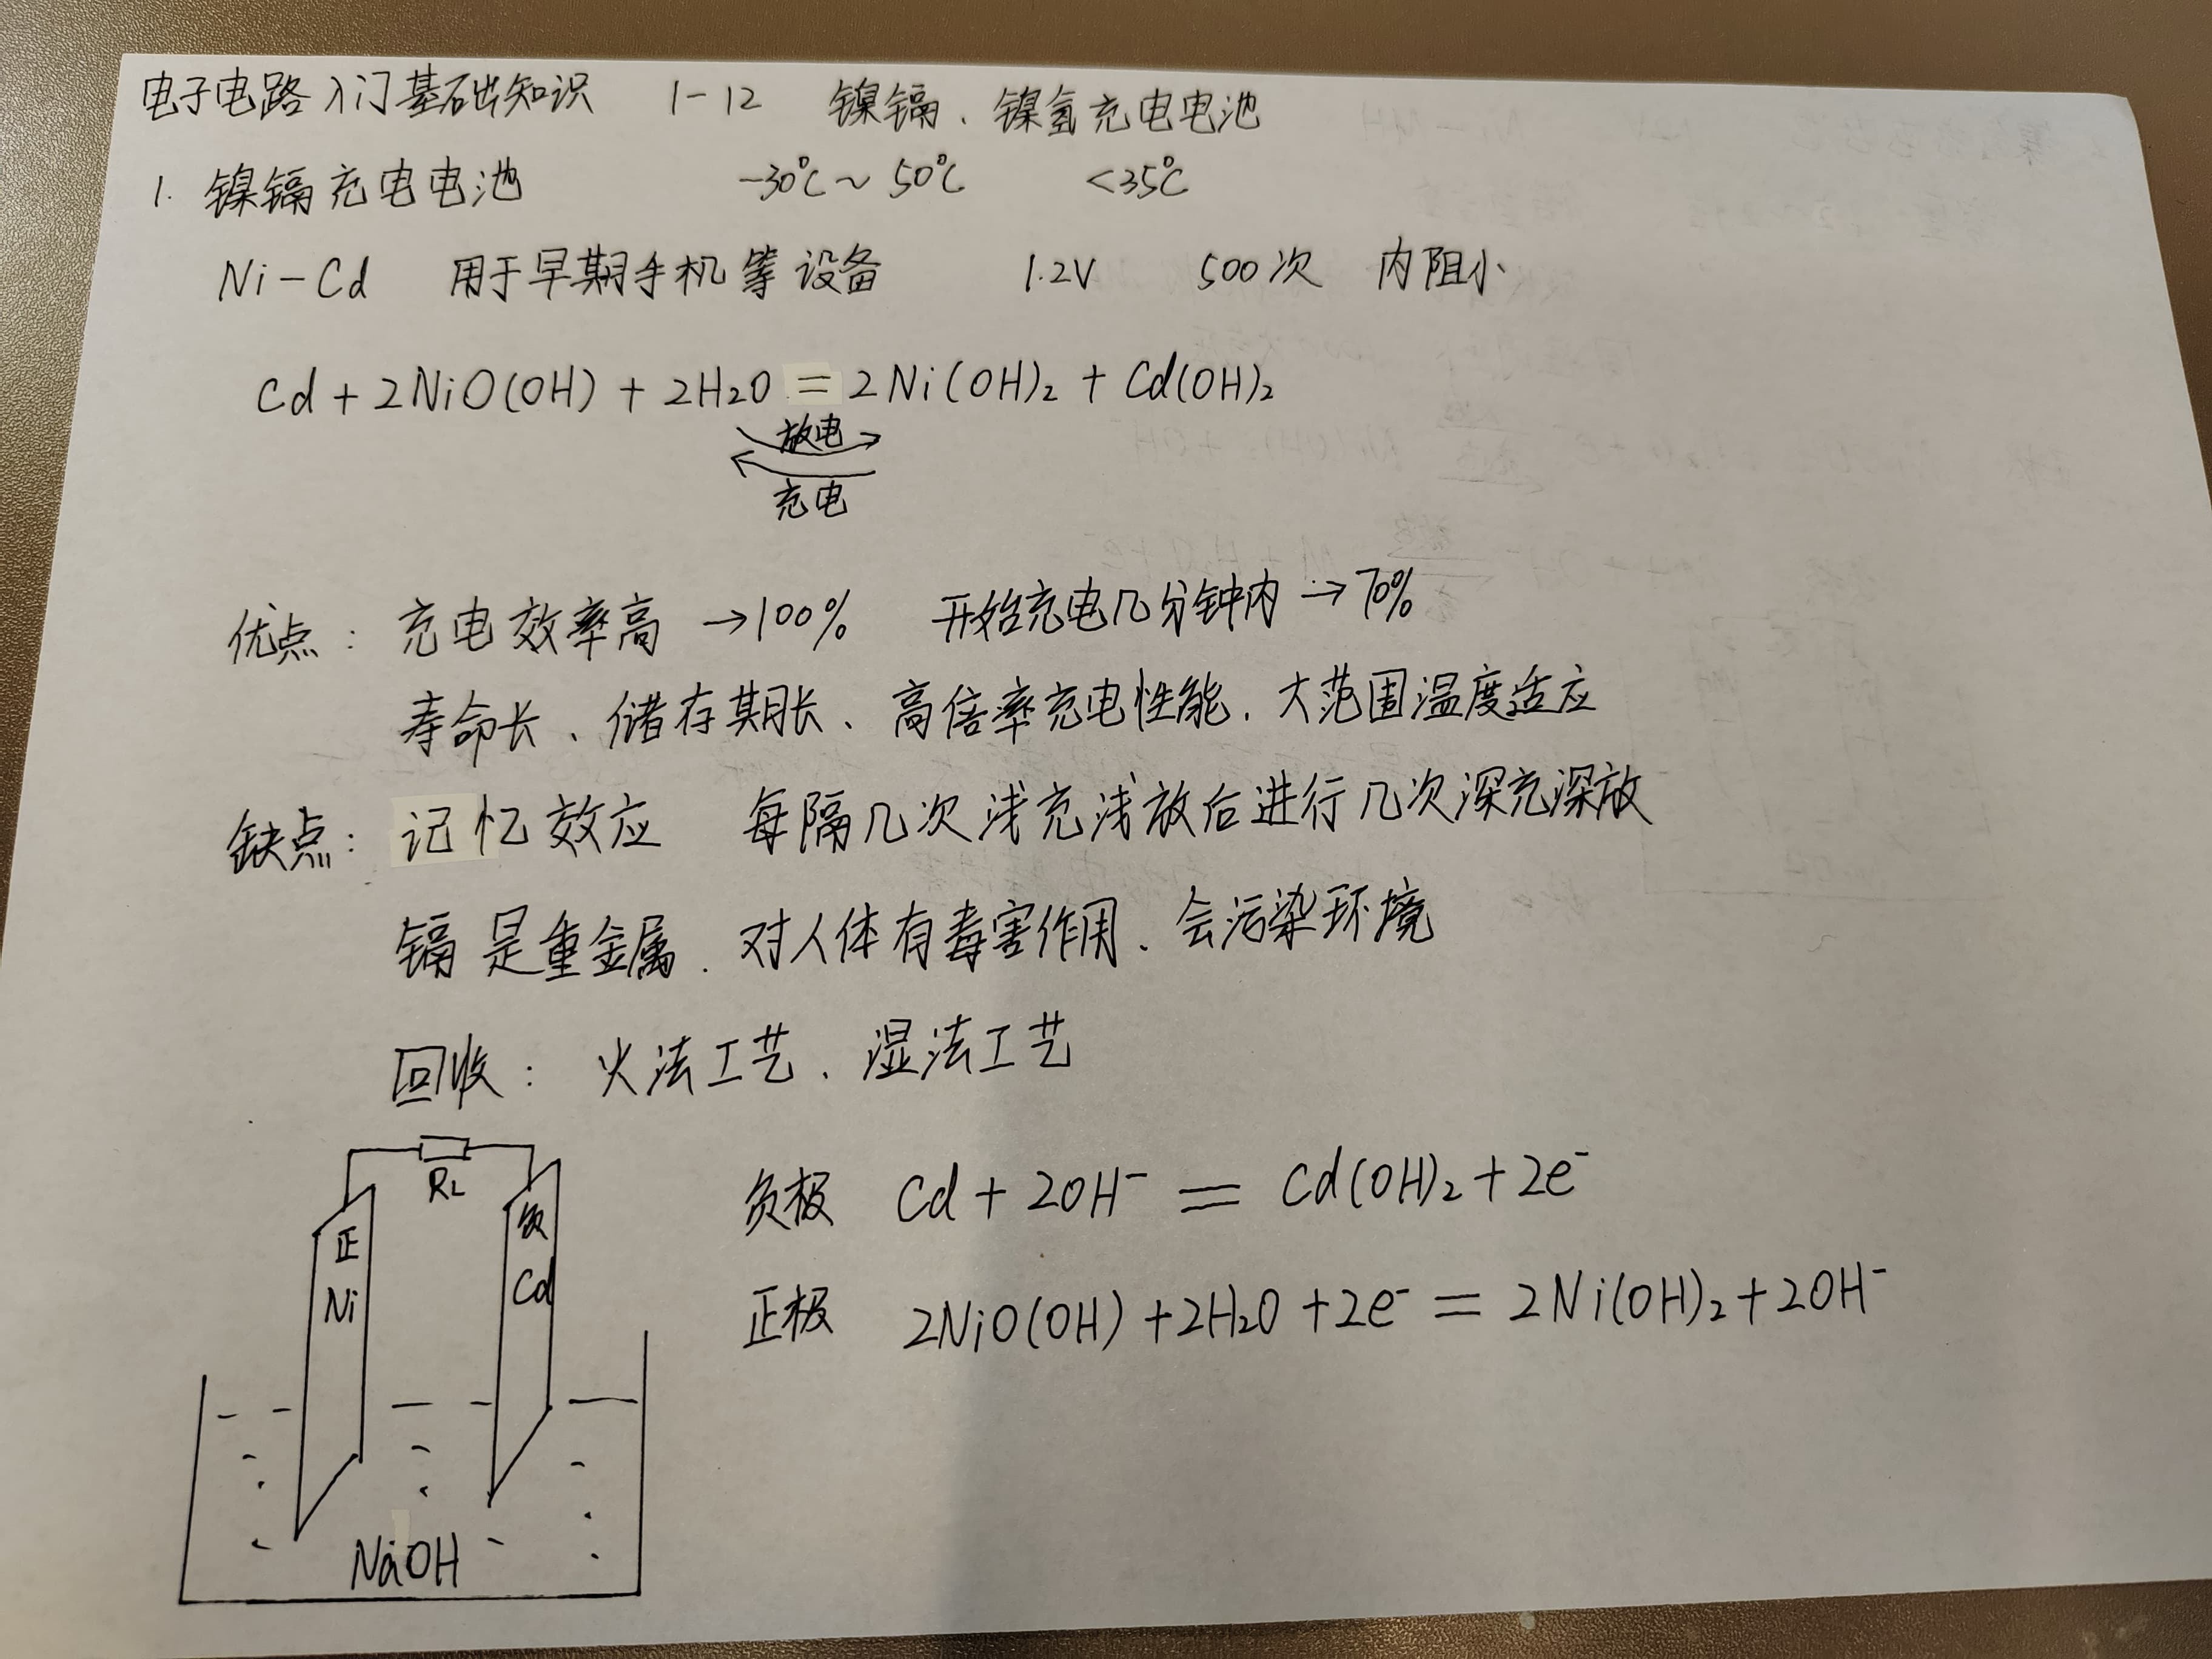 电子电路入门基础知识 1-12 镍镉、镍氢充电电池
1. 镍镉充电电池 -30℃~50℃ <35℃
Ni-Cd 用于早期手机等设备 1.2V 500次 内阻小
Cd+2NiO(OH)+2H₂O=2Ni(OH)₂+Cd(OH)₂
放电
充电
优点: 充电效率高 →100% 开始充电几分钟内→70%
寿命长、储存期长、高倍率充电性能、大范围温度适应
缺点: 记忆效应 每隔几次浅充浅放后进行几次深充深放
镉是重金属、对人体有毒害作用、会污染环境
回收: 火法工艺、湿法工艺
RL
正
Ni
负
Cd
NaOH
负极 Cd+2OH⁻=Cd(OH)₂+2e⁻
正极 2NiO(OH)+2H₂O+2e⁻=2Ni(OH)₂+2OH⁻